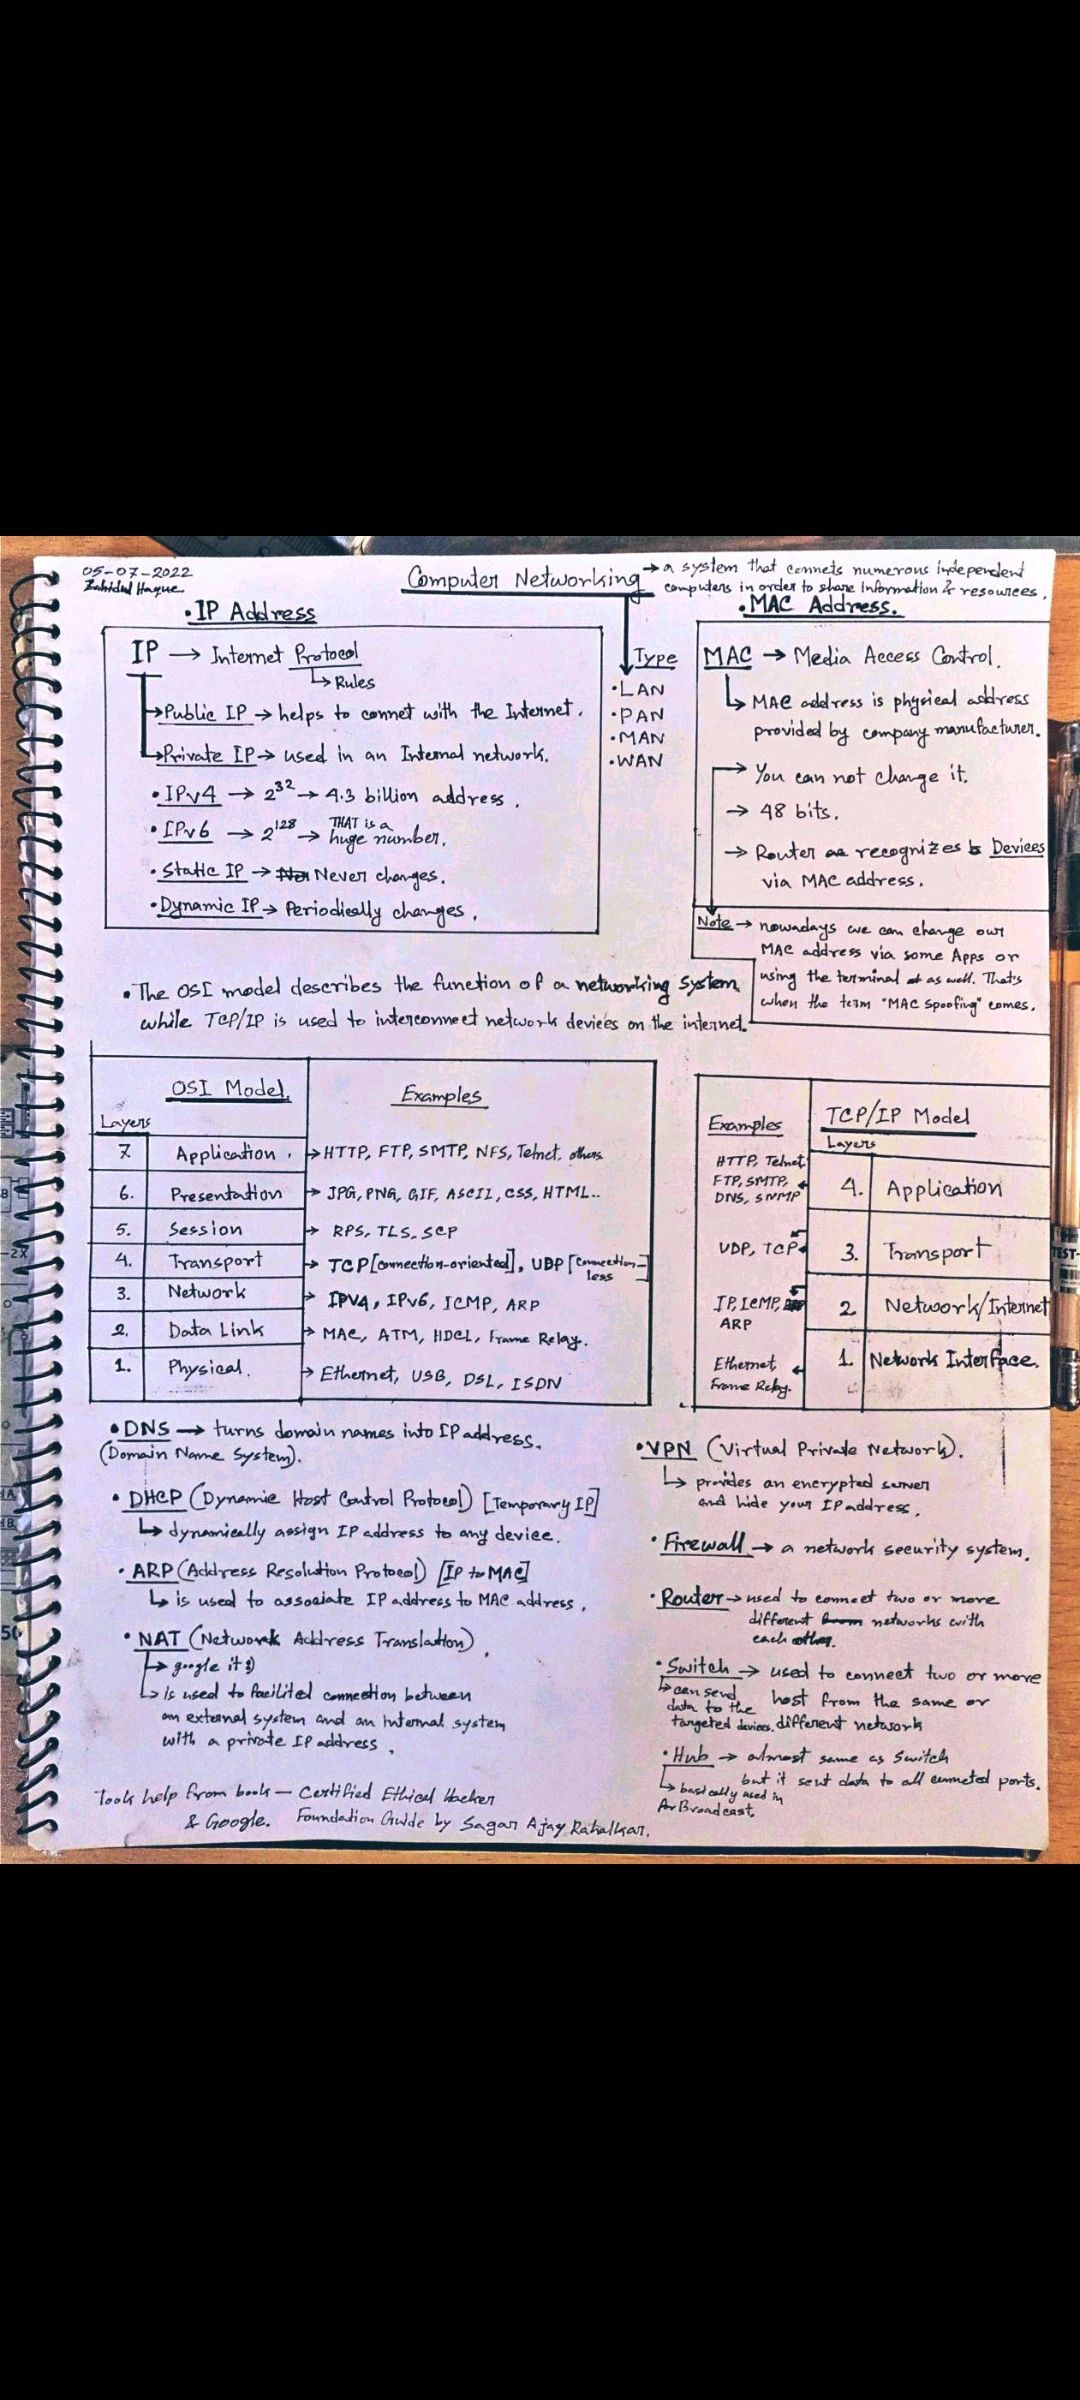 05-07-2022
Zahidul Haque
Computer Networking → a system that connets numerous independent
computers in order to share information & resources.
• IP Address
IP → Internet Protocol
↳ Rules
→ Public IP → helps to connet with the Internet.
→ Private IP → used in an Internal network.
• IPv4 → 2³² → 4.3 billion address.
• IPv6 → 2¹²⁸ → THAT is a
huge number.
• Static IP → Never changes.
• Dynamic IP → Periodically changes.
Type
• LAN
• PAN
• MAN
• WAN
• MAC Address.
MAC → Media Access Control.
↳ MAC address is physical address
provided by company manufacturer.
→ You can not change it.
→ 48 bits.
→ Router recognizes Devices
via MAC address.
Note → nowadays we can change our
MAC address via some Apps or
using the terminal as well. That's
when the term "MAC spoofing" comes.
• The OSI model describes the function of a networking system.
while TCP/IP is used to interconnect network devices on the internet.
OSI Model. Examples
Layers
7 Application. → HTTP, FTP, SMTP, NFS, Telnet, others
6. Presentation → JPG, PNG, GIF, ASCII, CSS, HTML..
5. Session → RPS, TLS, SCP
4. Transport → TCP [connection-oriented], UBP [connection-
less
3. Network → IPV4, IPV6, ICMP, ARP
2. Data Link → MAC, ATM, HDCL, Frame Relay.
1. Physical. → Ethernet, USB, DSL, ISDN
Examples TCP/IP Model
Layers
HTTP, Telnet
FTP, SMTP, 4. Application
DNS, SNMP
UDP, TCP 3. Transport
IP, ICMP, 2. Network/Internet
ARP
Ethernet, 1. Network Interface.
Frame Relay.
• DNS → turns domain names into IP address.
(Domain Name System).
• DHCP (Dynamic Host Control Protocol) [Temporary IP]
↳ dynamically assign IP address to any device.
• ARP (Address Resolution Protocol) [IP to MAC]
↳ is used to assosiate IP address to MAC address.
• NAT (Network Address Translation).
→ google it :)
↳ is used to facilited connection between
an external system and an internal system
with a private IP address.
Took help from book — Certified Ethical Hacker
& Google. Foundation Guide by Sagar Ajay Rahalkar.
• VPN (Virtual Private Network).
↳ provides an encrypted server
and hide your IP address.
• Firewall → a network security system.
• Router → used to connect two or more
different networks with
each other.
• Switch → used to connect two or more
host from the same or
different network
↳ can send
data to the
targeted devices.
• Hub → almost same as Switch
but it sent data to all conneted ports.
↳ basically used in
Broadcast.